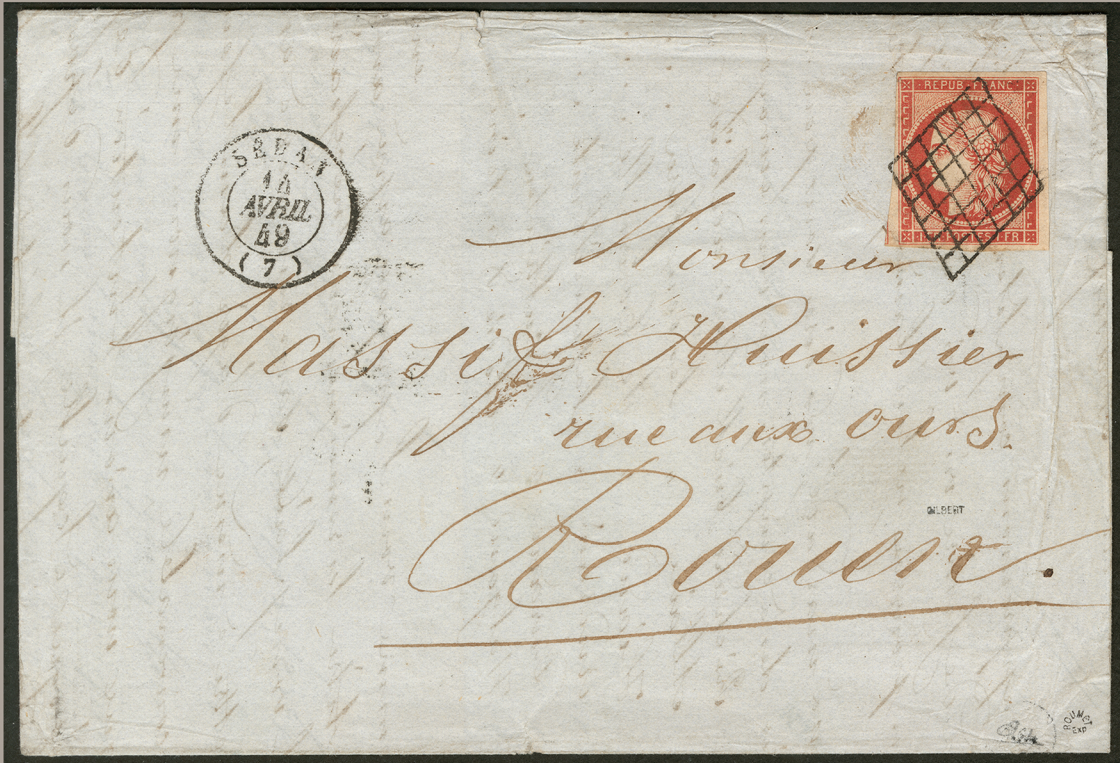 REPUB. FRANC.
SEDAN
14
AVRIL
49
(7)
1 FR
Monsieur
Massif Huissier
rue aux ours.
Rouen.
GILBERT
ROUMET
EXP